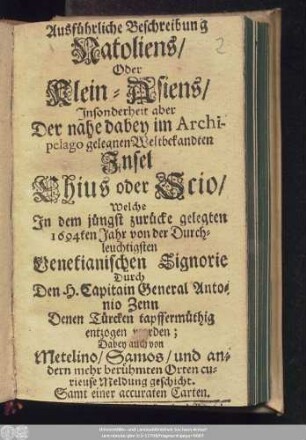 Ausführliche Beschreibung
2
Natoliens/
Oder
Klein-Asiens/
Insonderheit aber
Der nahe dabey im Archi-
pelago gelegnen Weltbekandten
Insel
Chius oder Scio/
Welche
In dem jüngst zurücke gelegten
1694ten Jahr von der Durch-
leuchtigsten
Venetianischen Signorie
Durch
Den H. Capitain General Anto-
nio Zenn
Denen Türcken tapffermüthig
entzogen worden;
Dabey auch von
Metelino/Samos/und an-
dern mehr berühmten Orten cu-
rieuse Meldung geschicht.
Samt einer accuraten Carten.